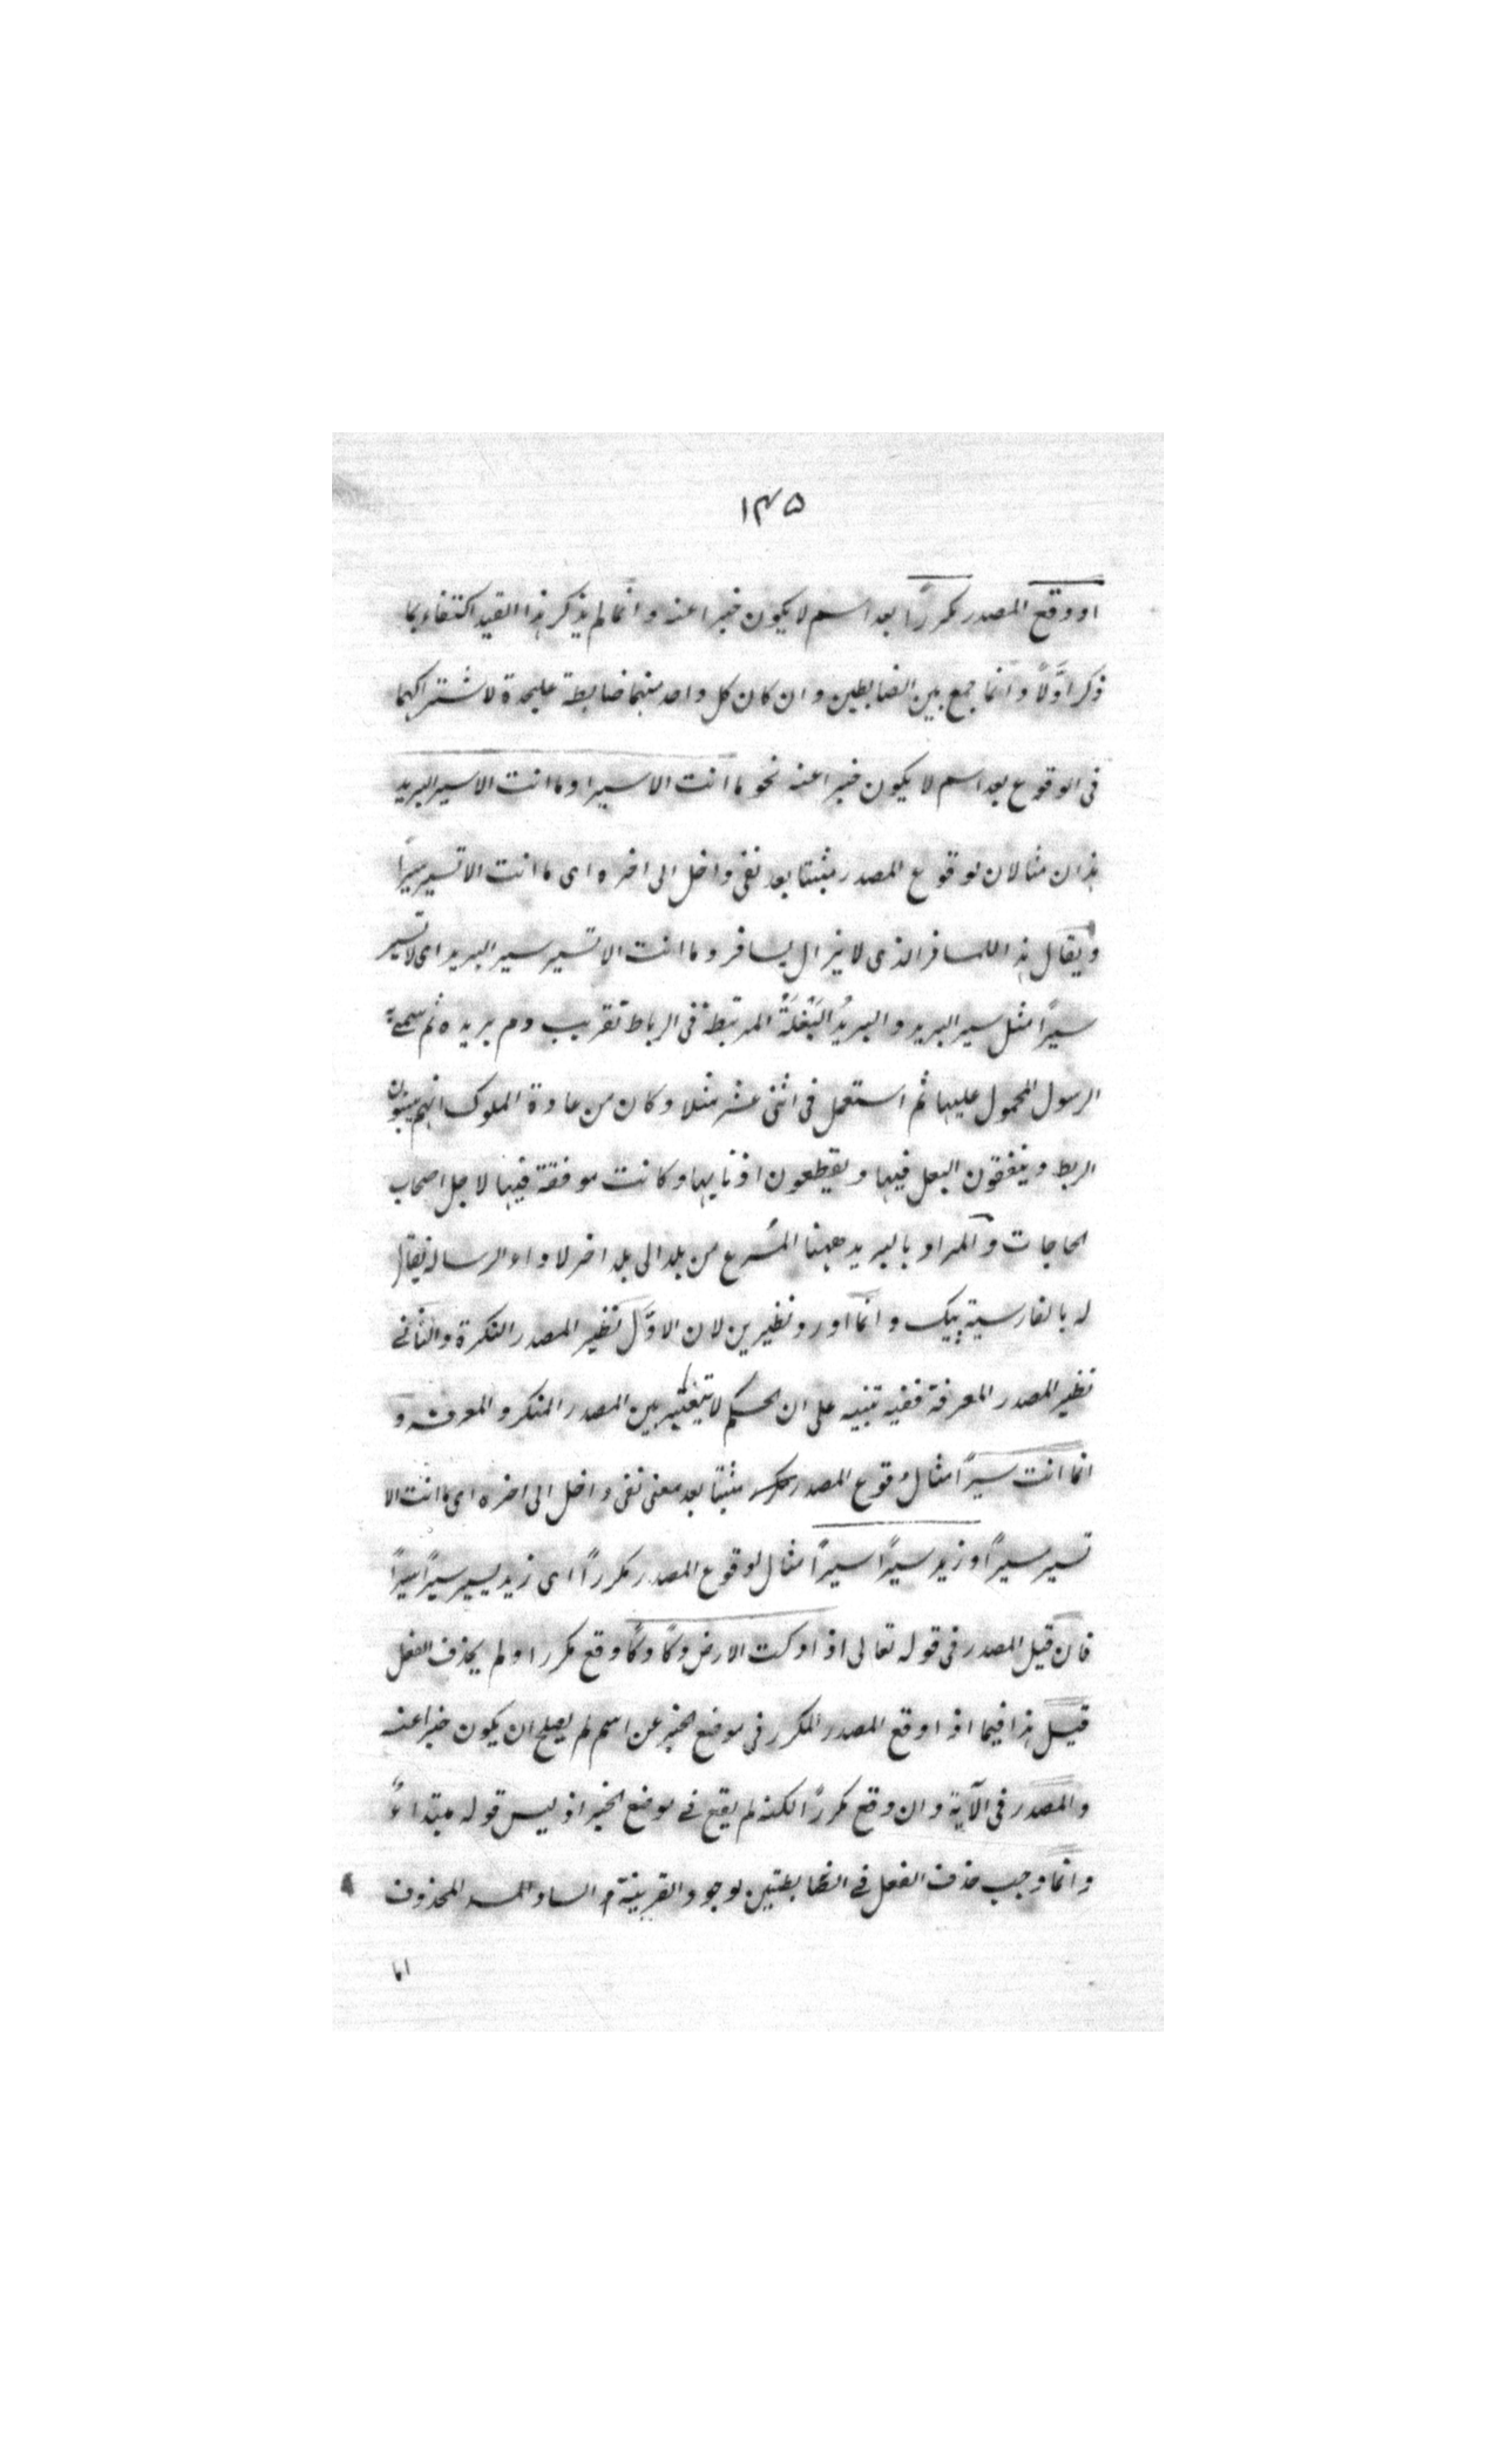 ۱۳۵
او وقع المصدر مكررًا بعد اسم لا يكون خبرا عنه وانّما لم يذكر هذا القيد اكتفاء بما
ذكر اوّلًا وانّما جمع بين الضابطين وان كان كل واحد منهما ضابطة عليحدة لاشتراكهما
فى الوقوع بعد اسم لا يكون خبرا عنه نحو ما انت الا سيرا وما انت الا سير البريد
هذان مثالان لوقوع المصدر مثبتا بعد نفى داخل الى اخره اى ما انت الا تسير سيرًا
ويقال هذا للمسافر الذى لا يزال يسافر وما انت الا تسير سير البريد اى لا تسير
سيرًا مثل سير البريد والبريدُ البَغْلَةُ المرتبطة فى الرباط تقريب دم بريده ثم سمى به
الرسول المحمول عليها ثم استعمل فى اثنى عشر مثلا وكان من عادة الملوك انهم يبنون
الربط وينفقون البغل فيها ويقطعون اذنابها وكانت موقفة فيها لاجل اصحاب
الحاجات والمراد بالبريد ههنا المُسرع من بلد الى بلد اخر لاداء الرسالة يقال
له بالفارسية پيك وانّما اورد نظيرين لان الاوّل نظير المصدر النكرة والثانى
نظير المصدر المعرفة ففيه تنبيه على ان الحكم لا يتغير بين المصدر المنكر والمعرفه و
انما انت سيرًا مثال وقوع المصدر مثبتًا بعد معنى نفى داخل الى اخره اى ما انت الا
تسير سيرًا وزيد سيرًا سيرًا مثال لوقوع المصدر مكررًا اى زيد يسير سيرًا سيرًا
فان قيل المصدر فى قوله تعالى اذا دكت الارض دكًا دكًا وقع مكررا ولم يحذف الفعل
قيل هذا فيما اذا وقع المصدر المكرر فى موضع الخبر عن اسم لم يصلح ان يكون خبرا عنه
والمصدر فى الآية وان وقع مكررًا لكنه لم يقع فى موضع الخبر اذ ليس قوله مبتداءً
وانّما وجب حذف الفعل فى الضابطتين لوجود القرينة والساد المسد المحذوف
اما